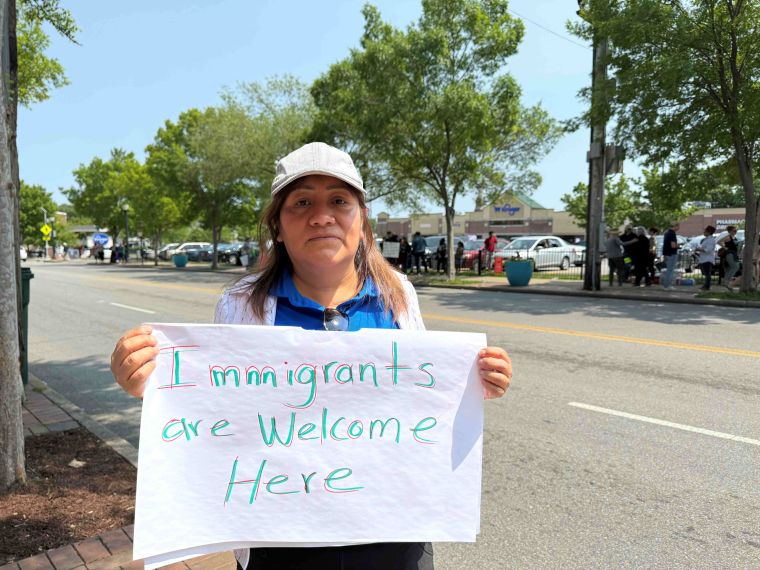 Immigrants
are Welcome
Here
PHARMACY